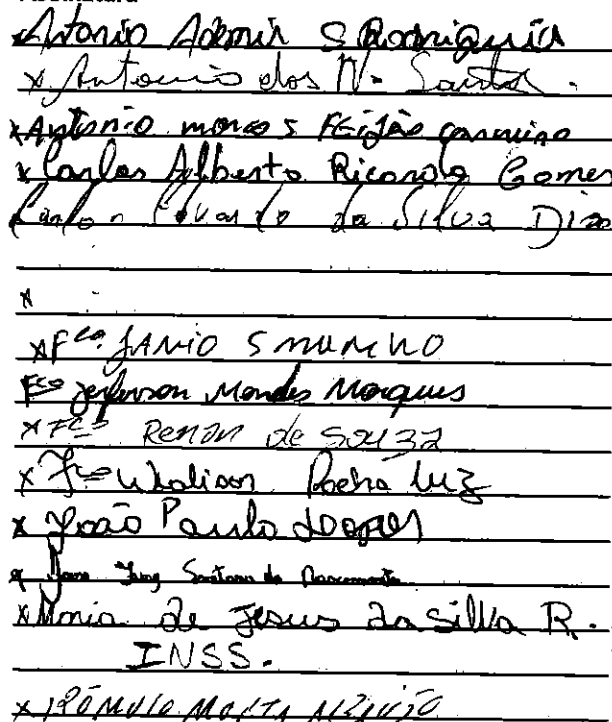 x Antonio Ademir S Rodrigues
x Antonio dos N. Santos.
x Antonio marcos FEijão
x Carlos Alberto Ricardo Gomes
Carlos Eduardo da Silva Dias
x
x Fco JANIO S
Fco Jeferson Mendes Marques
x Fco Renan de Souza
x Fco Rocha Luz
x João Paulo Lopes
Santana do Nascimento
x Maria de Jesus da Silva R.
INSS.
x RÔMULO